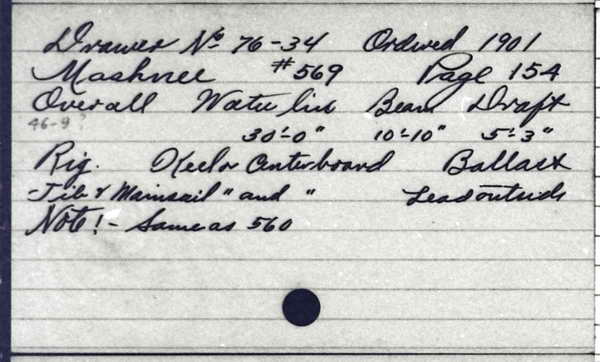 Drawer No 76-34 Ordered 1901
Mashnee #569 Page 154
Overall Water line Beam Draft
46-9? 30'-0" 10'-10" 5'-3"
Rig. Keel or Centerboard Ballast
Jib & Mainsail " and " Lead outside
Note! - Same as 560